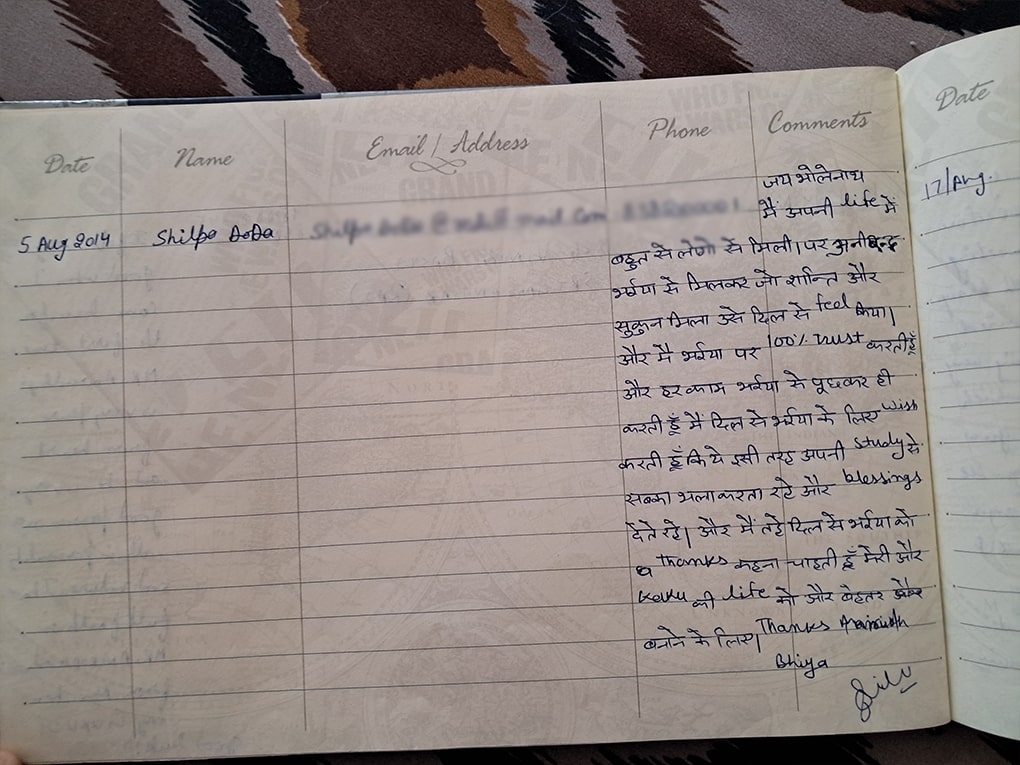 Date Name Email / Address Phone Comments Date
जय भोलेनाथ
17/Aug.
5 Aug 2014 Shilpa DoDa मैं अपनी life में
बहुत से लोगो से मिली। पर अनीरूद्ध
भईया से मिलकर जो शान्ति और
सुकुन मिला उसे दिल से feel किया।
और मै भईया पर 100% trust करती हूँ
और हर काम भईया से पूछकर ही
करती हूँ मैं दिल से भईया के लिए wish
करती हूँ कि ये इसी तरह अपनी study से
सबका भला करता रहे और blessings
देते रहे। और मैं तहे दिल से भईया को
thanks कहना चाहती हूँ मेरी और
की life को और बेहतर
बनाने के लिए। Thanks
Bhiya